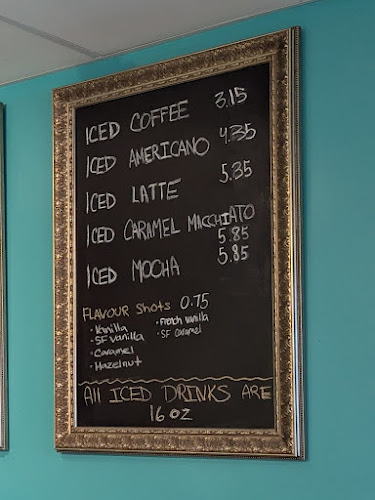 ICED COFFEE 3.15
ICED AMERICANO 4.35
ICED LATTE 5.35
ICED CARAMEL MACCHIATO
5.85
ICED MOCHA 5.85
FLAVOUR Shots 0.75
• Vanilla • French vanilla
• SF vanilla • SF caramel
• Caramel
• Hazelnut
All ICED DRINKS ARE
16 oz